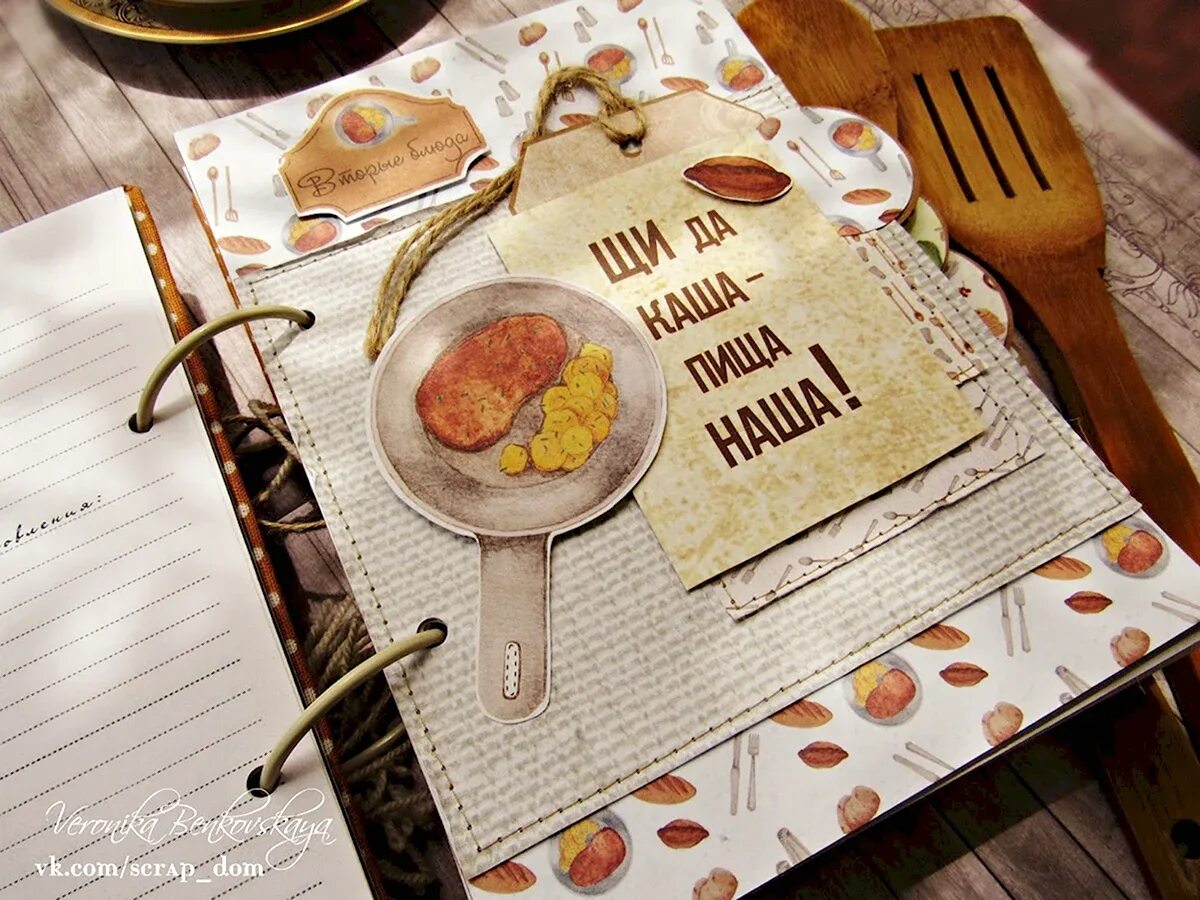 Вторые блюда
ЩИ ДА
КАША-
ПИЩА
НАША!
овления:
Veronika Benkovskaya
vk.com/scrap_dom